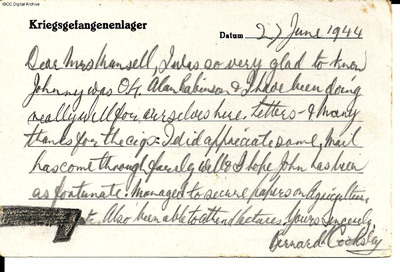 IBCC Digital Archive
Kriegsgefangenenlager
Datum 27 June 1944
Dear Mrs Mansell, I was so very glad to know
Johnny was O.K. Alan & I have been doing
really well for ourselves here. Letters - & many
thanks for the cigs: I did appreciate some, mail
has come through fairly well & I hope John has been
as fortunate. Managed to secure papers on Agriculture
Also been able to attend lectures. Yours Sincerely,
Bernard